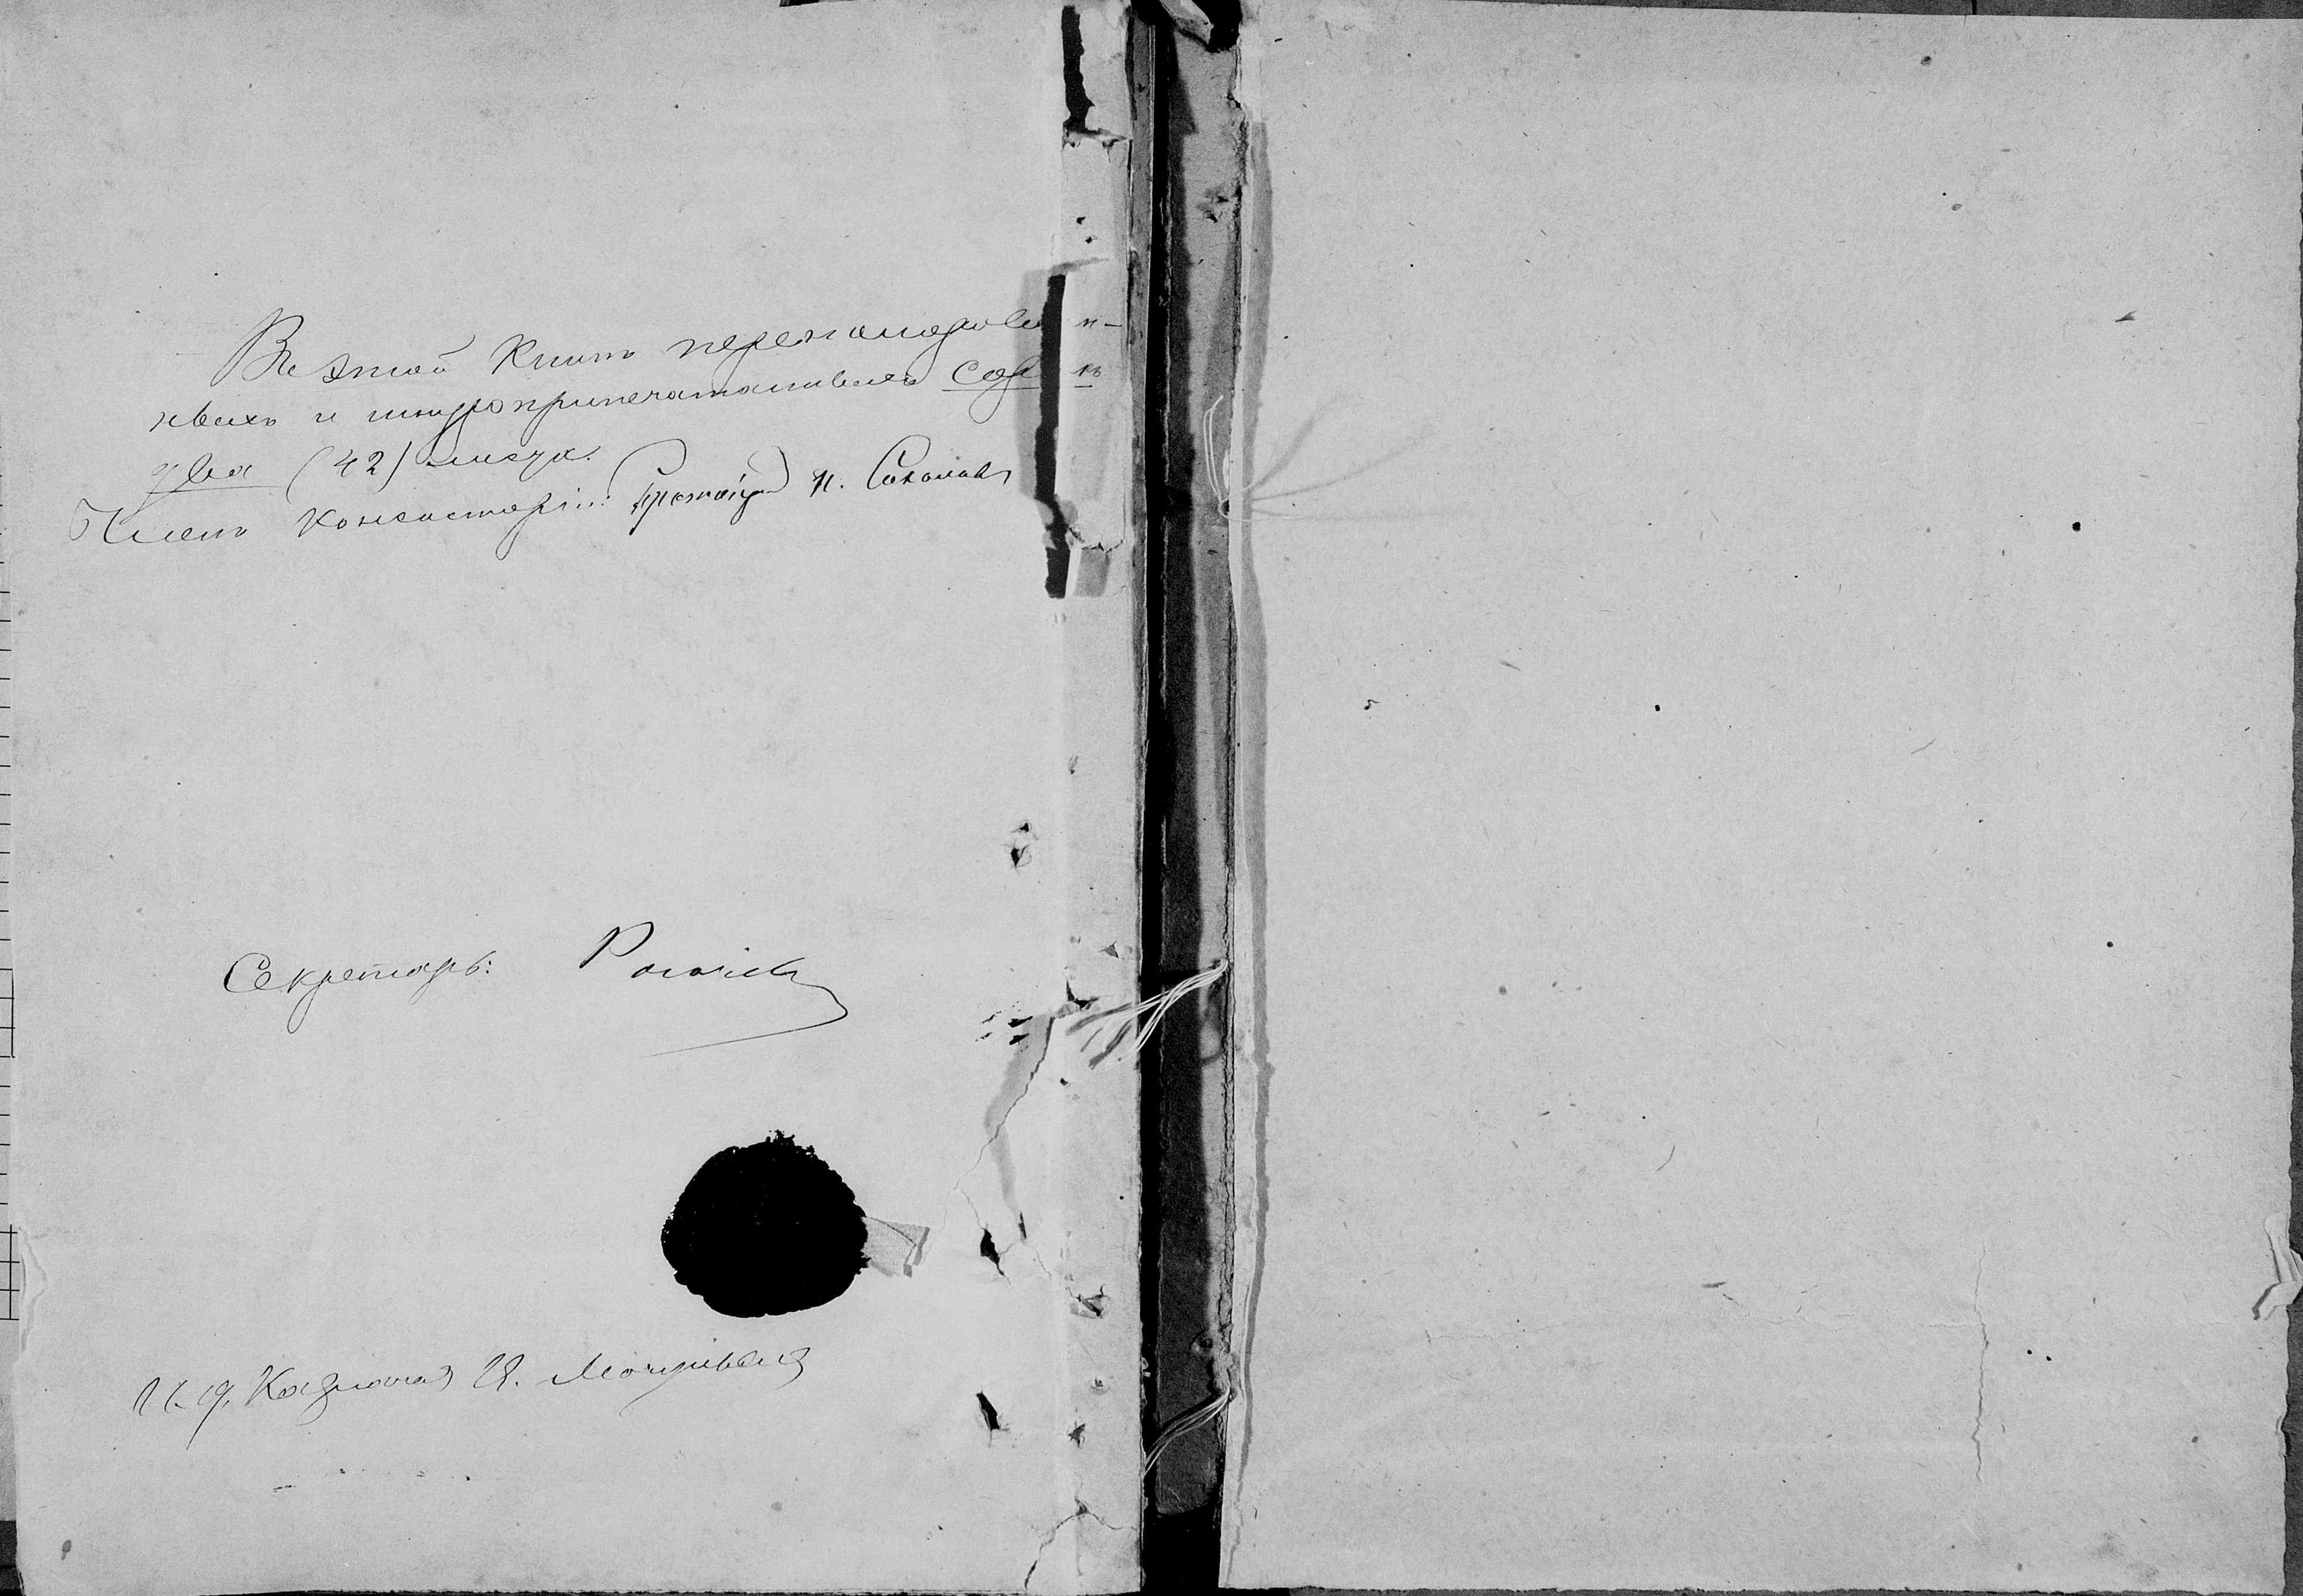 Въ этой книгѣ перенумерован-
ныхъ и шнуроприпечатанныхъ сорокъ
два (42) листа.
Членъ Консисторіи: Протоіерей П. Соколовъ
Секретарь:
И. д. Казначея И.